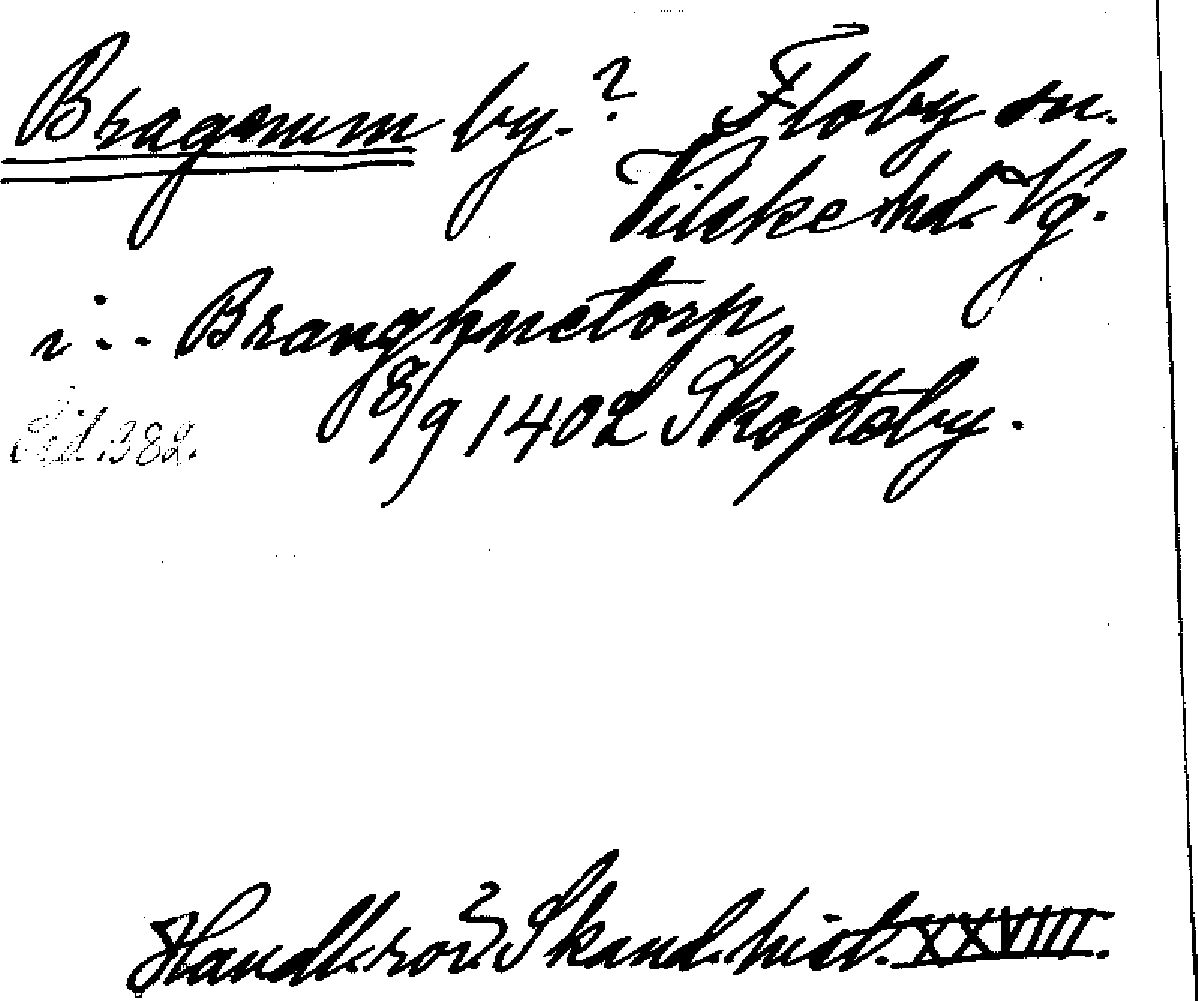 Bragnum by.? Floby sn.
Vilske hd. Vg.
i.. Branghnetorp
8/9 1402 Skofteby.
Sid. 382.
Handl. rör. Skand. hist. XXVIIII.